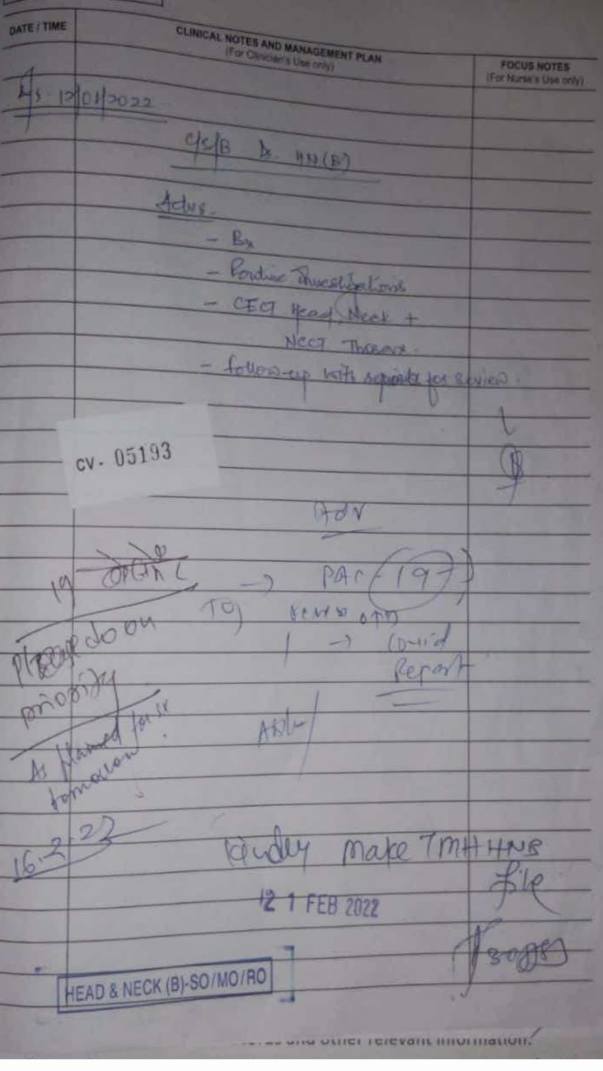 DATE / TIME
CLINICAL NOTES AND MANAGEMENT PLAN
(For Clinician's Use only)
FOCUS NOTES
(For Nurse's Use only)
12/01/2022
C/S/B Dr. HN(B)
Advs.
- Bx
- Routine Investigations
- CECT Head, Neck +
NCCT Thorax.
- follow-up with reports for review.
CV- 05193
Adv
19
→ PAC (197)
→ Covid
Report
Please do on
priority
As planned for
tomorrow
16.2.22
Kindly make TMH HNB
file
21 FEB 2022
HEAD & NECK (B)-SO/MO/RO
and other relevant information.